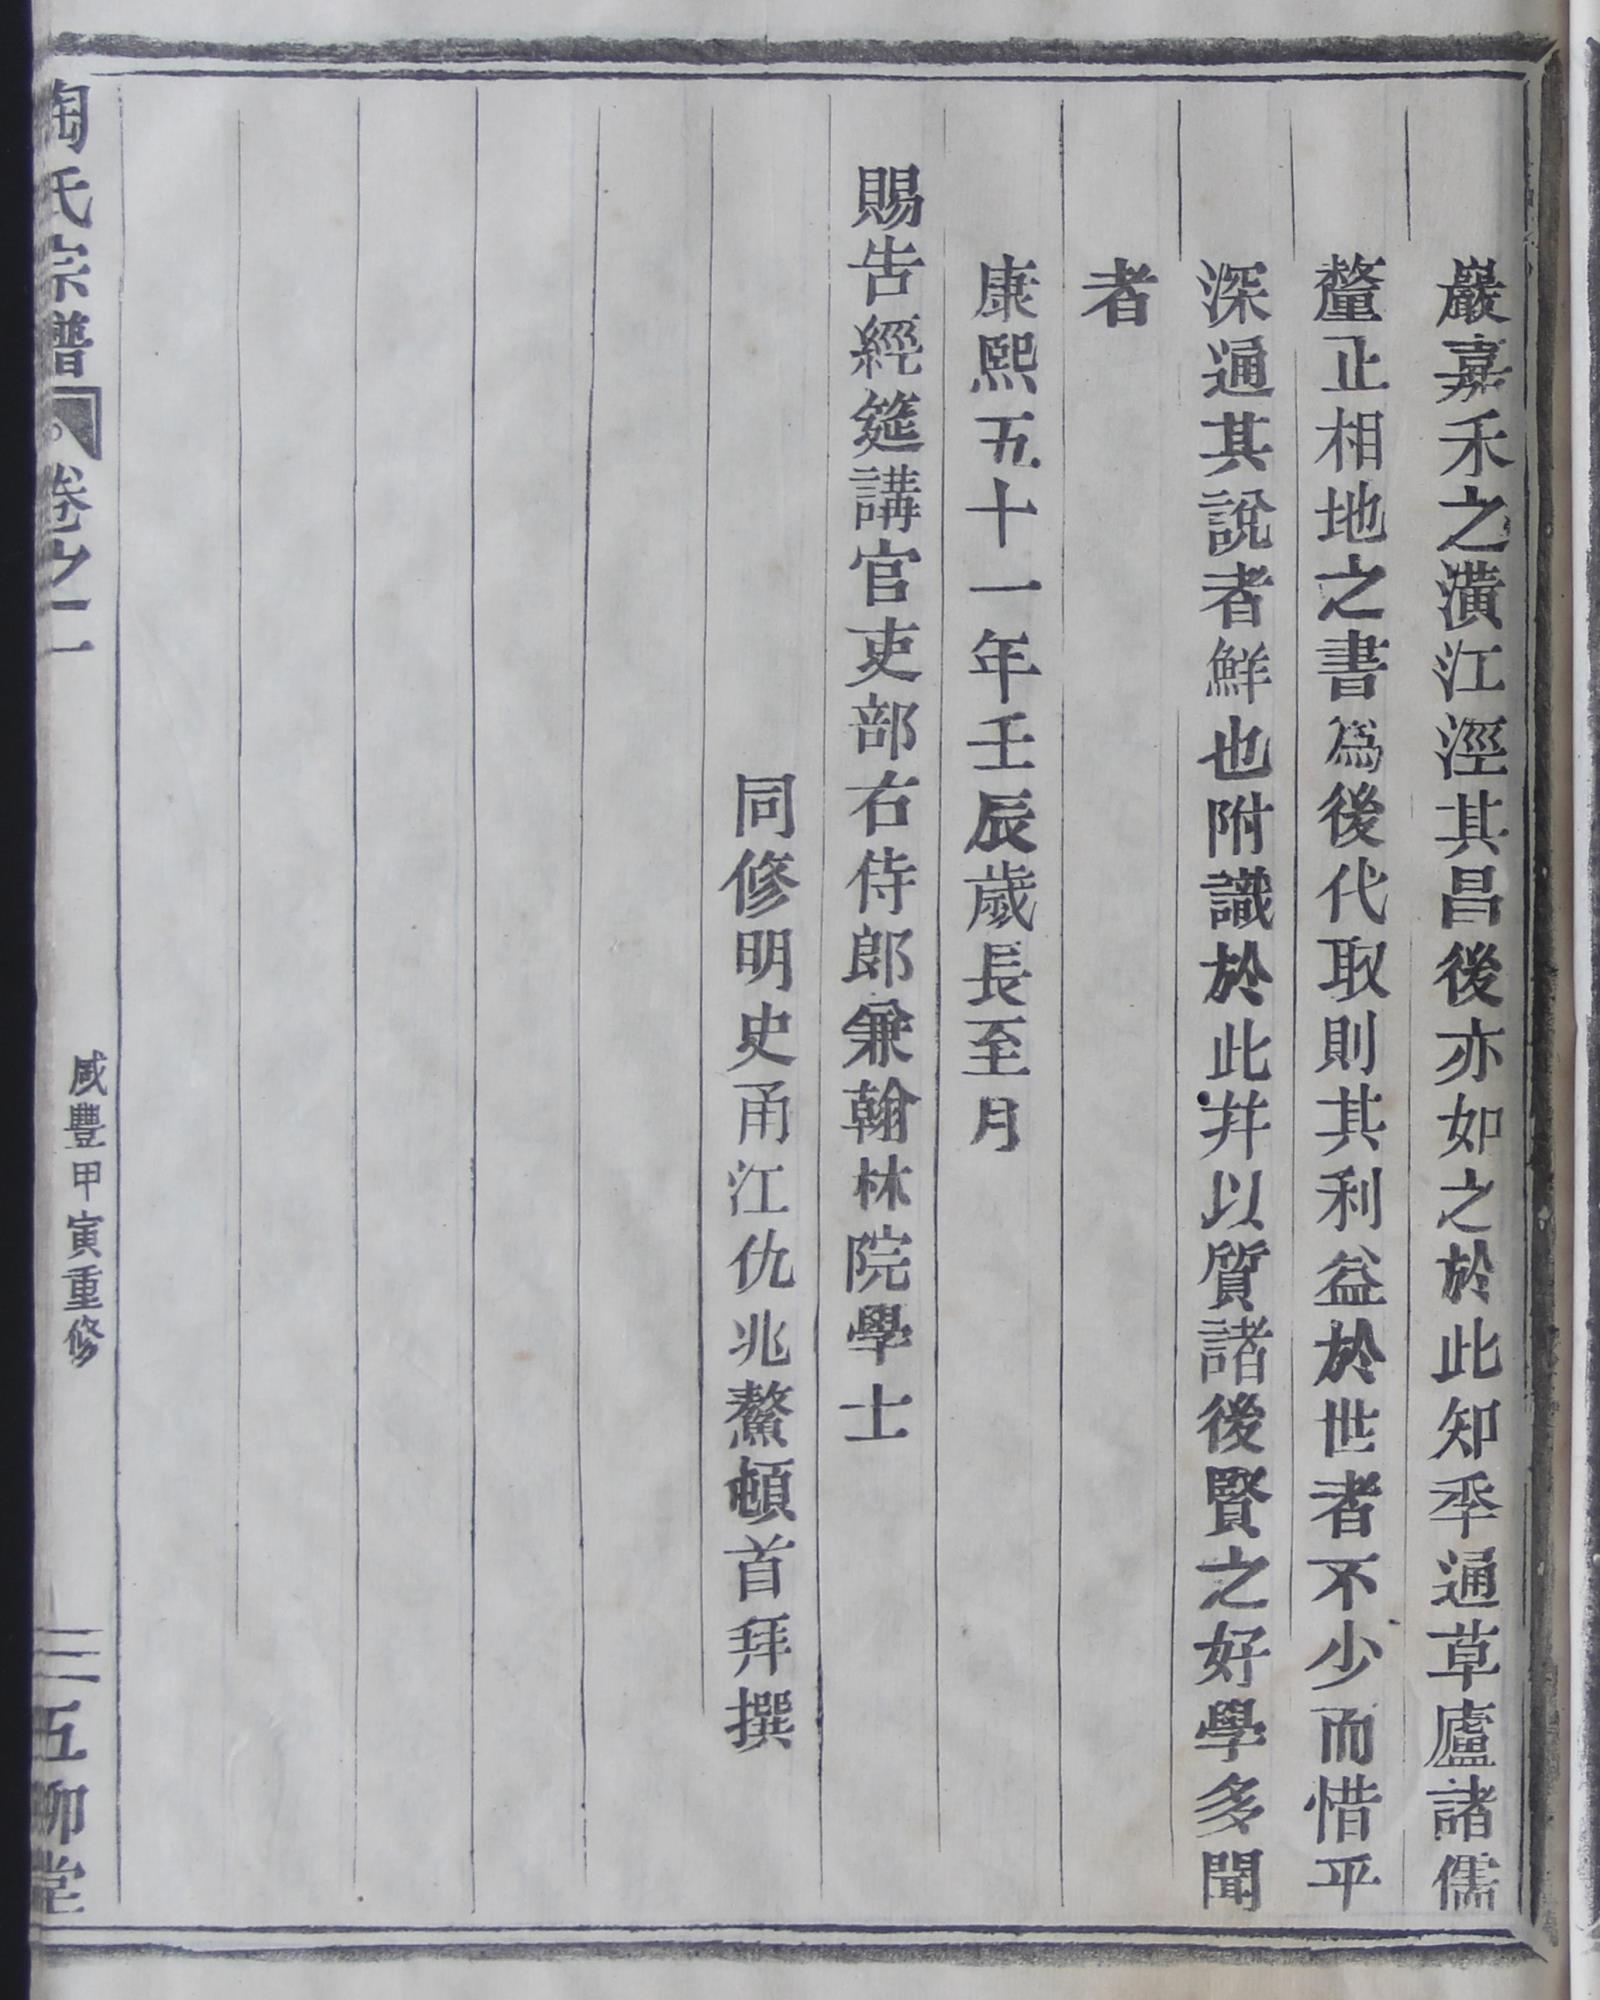 巖嘉禾之潢江溼其昌後亦如之於此知季通草廬諸儒
釐正相地之書爲後代取則其利益於世者不少而惜乎
深通其說者鮮也附識於此并以質諸後賢之好學多聞
者
康熙五十一年壬辰歲長至月
賜告經筵講官吏部右侍郎兼翰林院學士
同修明史甬江仇兆鰲頓首拜撰
陶氏宗譜 卷之二 三 五柳堂
咸豐甲寅重修